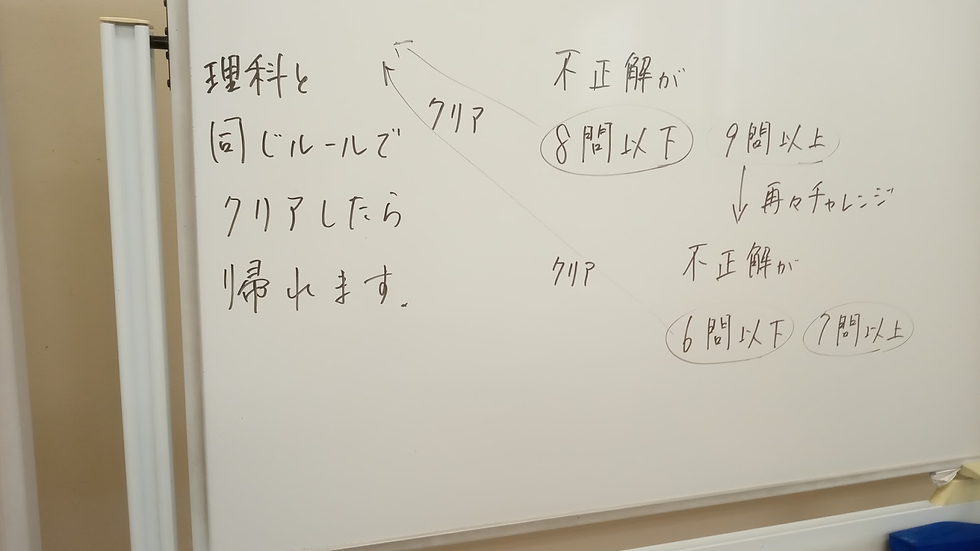 理科と
同じルールで
クリアしたら
帰れます。
クリア
不正解が
8問以下 9問以上
再々チャレンジ
クリア
不正解が
6問以下 7問以上